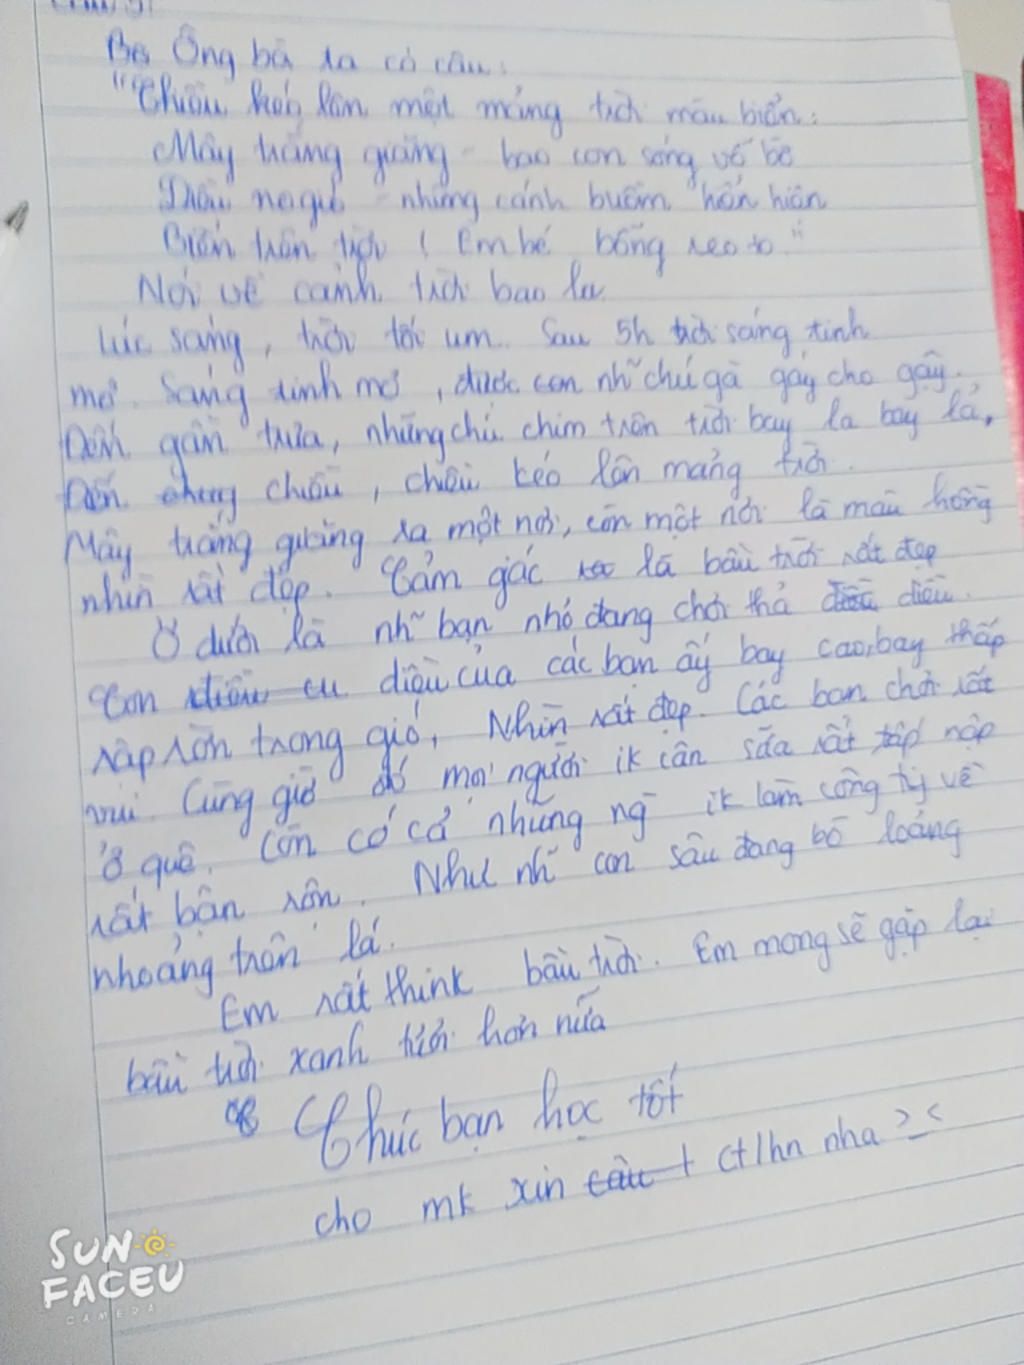 Ông bà ta có câu:
"Chiều kéo lên một mảng trời màu biển:
Mây trắng giăng - bao con sóng vỗ bờ
Diều no gió - những cánh buồm hớn hiên
Biển trên trời ! Em bé bỗng reo to."
Nói về cảnh trời bao la.
Lúc sáng, trời tối um. Sau 5h trời sáng tinh
mơ. Sáng tinh mơ, được con nh~ chú gà gáy cho gậy.
Đến gần trưa, những chú chim trên trời bay la bay lả,
Đến chiều, chiều kéo lên mảng trời.
Mây trắng giăng ra một nơi, còn một nơi là màu hồng
nhìn rất đẹp. Cảm giác là bầu trời rất đẹp
Ở dưới là nh~ bạn nhỏ đang chơi thả diều.
Con diều của các bạn ấy bay cao, bay thấp
rập rờn trong gió, Nhìn rất đẹp. Các bạn chơi rất
vui. Cũng giờ đó mọi người ik cân sữa rất tấp nập
ở quê. Còn có cả những ng~ ik làm công ty về
rất bận rộn. Như nh~ con sâu đang bò loáng
nhoáng trên lá.
Em rất think bầu trời. Em mong sẽ gặp lại
bầu trời xanh tươi hơn nữa
Chúc bạn học tốt
cho mk xin 1 ctlhn nha >_<
SUN
FACEU
CAMERA